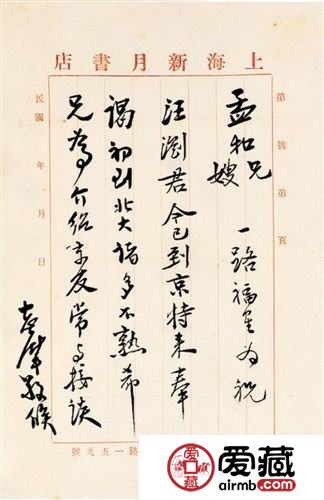 上海新月書店
第 號第 頁
孟和兄嫂 一路福星为祝
汪瀏君今已到京特来奉
謁初到北大諸多不熟希
兄為介紹京友常与接谈
志摩敬候
民國 年 月 日
路一五九號
爱藏
airmb.com